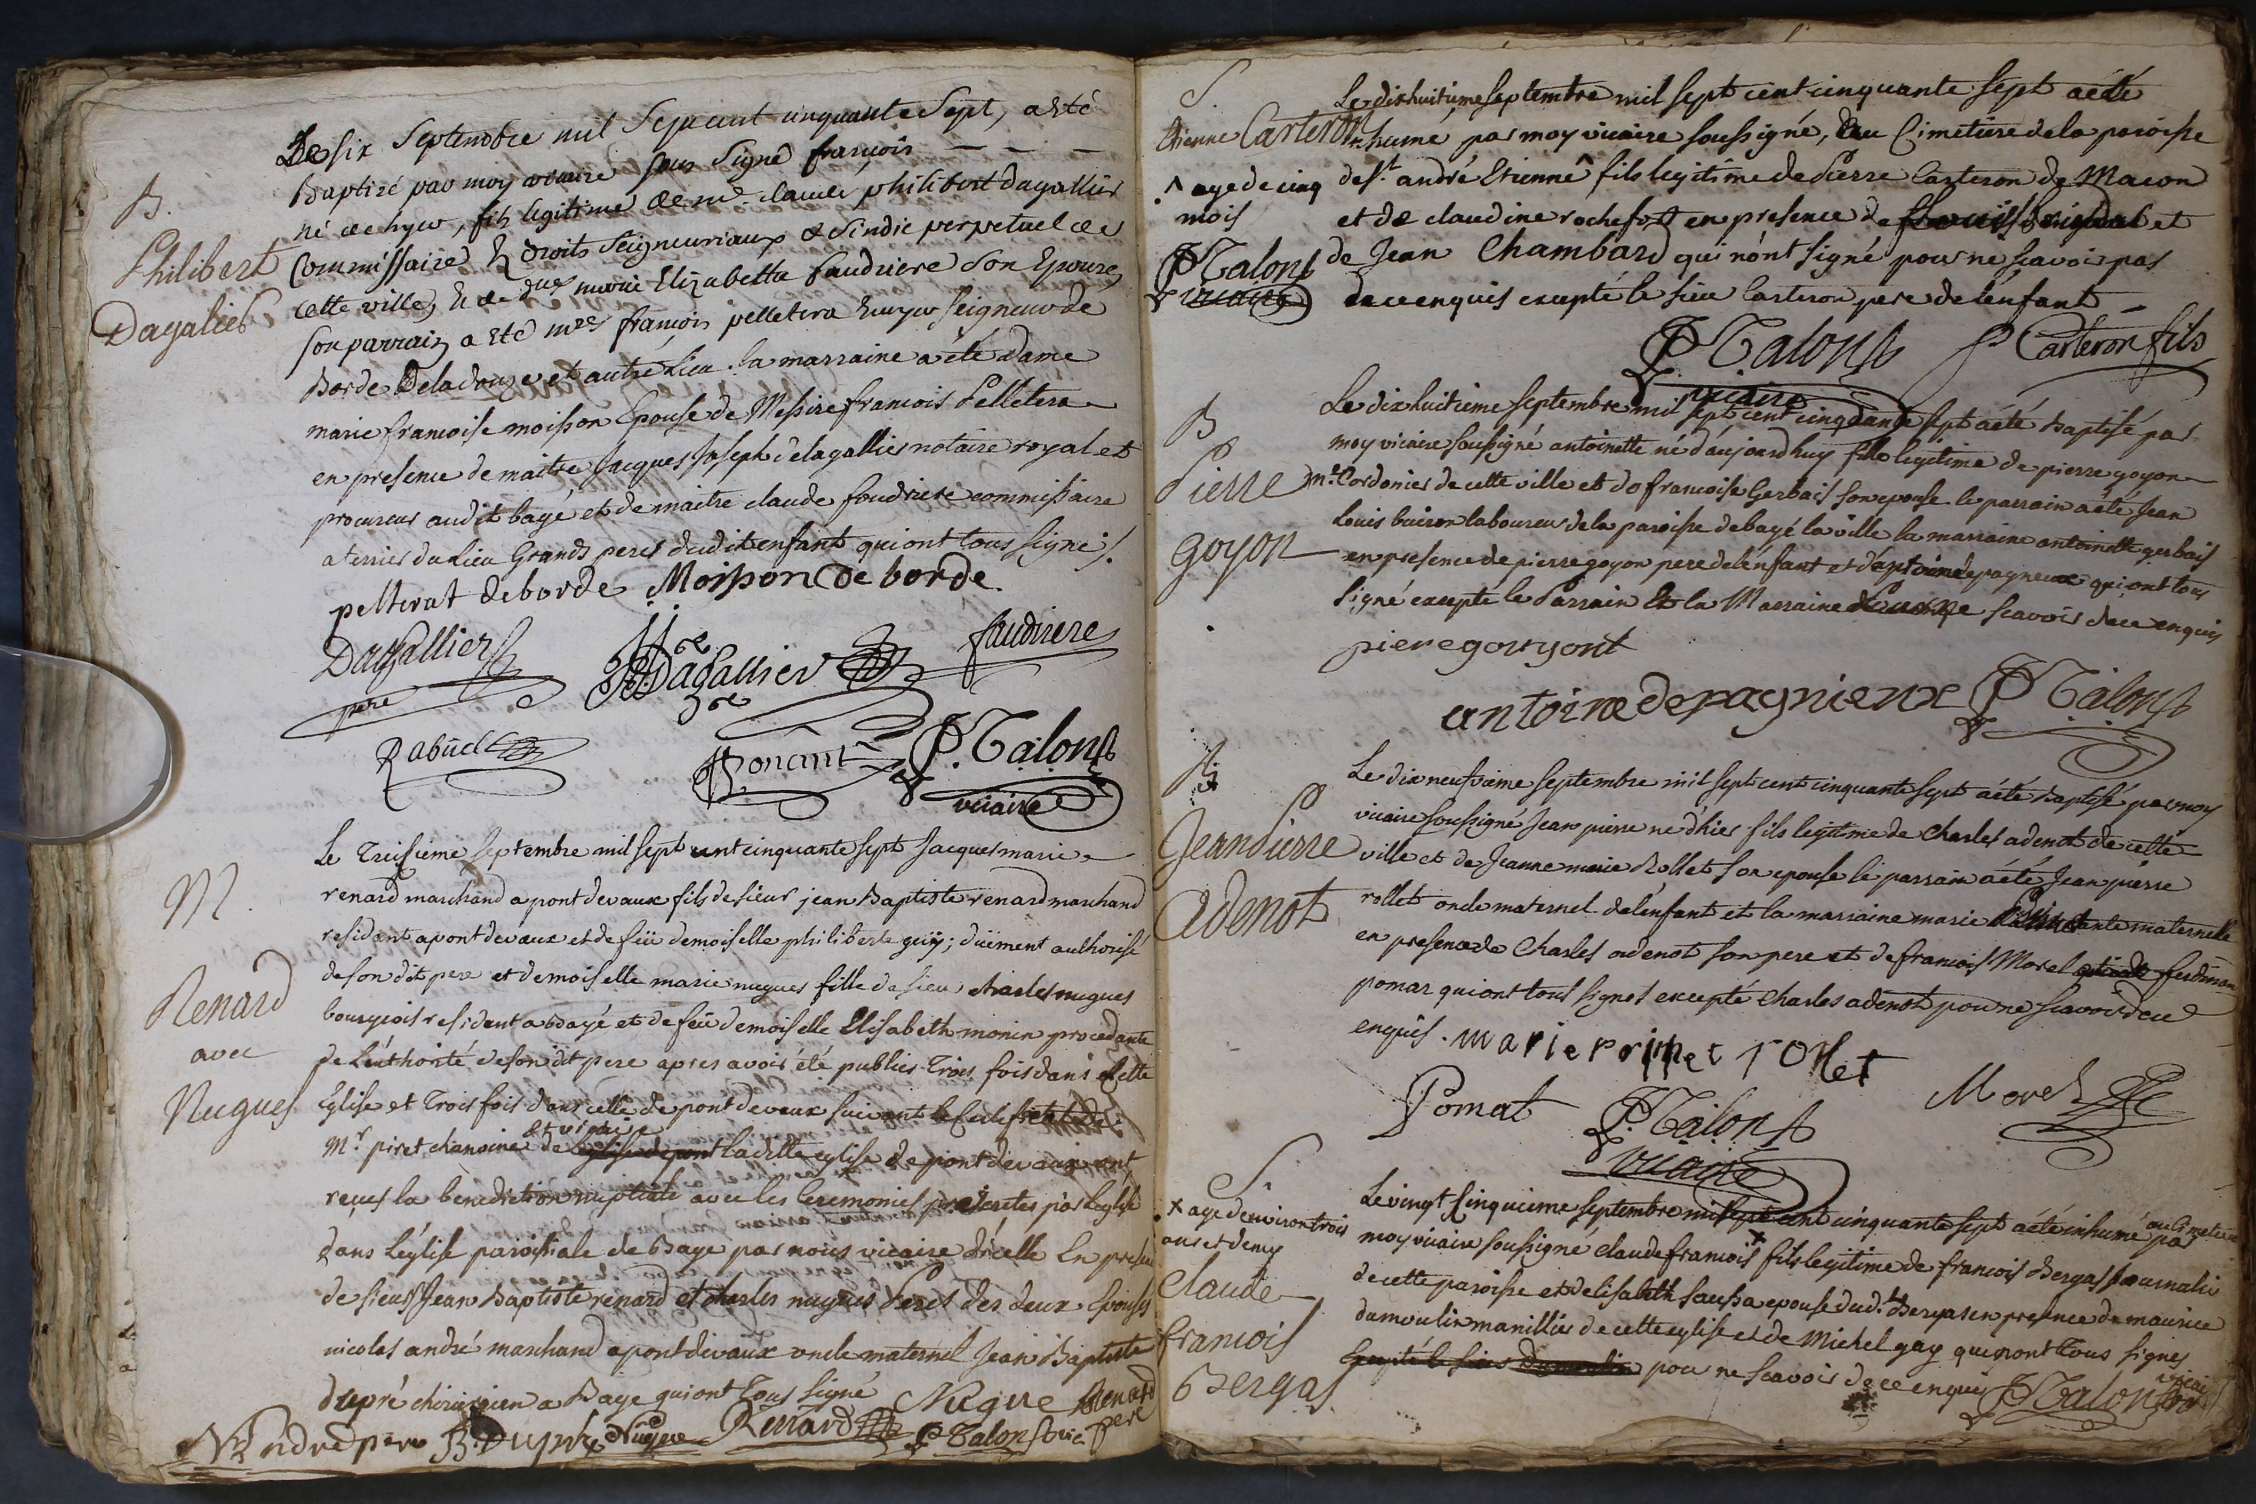 B.
Philibert
Dagallier
Le six Septembre mil Sept cent cinquante Sept, a Eté
Baptizé par moy vicaire sous Signé françois
né de hyer, fils legitime de me. claude philibert dagallier
Commissaire En droits Seigneuriaux & Sindic perpetuel de
cette ville, Et de dlle marie Elizabeth faudriere Son Epouse,
son parrain a Eté mre françois pelletera Ecuyer Seigneur de
Borde Deladouze et autre Lieu. la marraine a été dame
marie francoise moisson Epouse de Messire francois Pelletera
en presence de maitre Jacques Joseph delagallier notaire royal et
procureur audit bagé et de maitre claude foudriere commissaire
a terrier du Lieu Grands peres dudit enfant qui ont tous signé ./.
pelterat deborde Moisson De borde
Dagallier
pere
Dagallier
faudriere
Rabuel
Ponant P. Talon
vicaire
M.
Renard
avec
Nugues
Le Treisieme septembre mil sept cent cinquante sept Jacques marie
renard marchand a pont devaux fils de sieur jean Baptiste renard marchand
residant a pont devaux et de füe demoiselle philiberte guÿ; duëment authorisé
de son dit pere et demoiselle marie nugues fille de sieur charles nugues
bourgeois residant a Bagé et de feüe demoiselle Elisabeth monin procedante
de L'euthorité de son dit pere apres avoir été publies Trois fois dans cette
Eglise et Trois fois dans celle de pont devaux suivant le Certifficat de
et vicaire
Mr piret chanoine de l'eglise de pont laditte eglise de pont devaux ont
reçus la benediction nuptiale avec les Ceremonies prescrites par L'eglise
dans L'église paroissiale de Bage par nous vicaire d'icelle En presence
de sieurs Jean Baptiste renard et charles nugues Peres des deux Epouses
nicolas andré marchand a pont devaux oncle maternel Jean Baptiste
dupré chirurgien a Bage qui ont Tous signé
Nugue Renard
pere
N Andre pere B. Dupré Nugue Renard P Talon vic
S.
Etienne Carteron
^ age de cinq
mois
P Talon
vicaire
Le dixhuitieme septembre mil sept cent cinquante sept a été
inhumé, par moy vicaire soussigné, au Cimetiere de la paroisse
de St. andré Etienne ^ fils legitime de Pierre Carteron de Macon
et de claudine rochefort en presence de et
de Jean Chambard qui n'ont signé pour ne scavoir pas
de ce enquis excepté le sieur Carteron pere de l'enfant
P Talon P Carteron fils
vicaire
B
Pierre
Goyon
Le dixhuitieme septembre mil sept cent cinquante sept a été Baptisé par
moy vicaire soussigné antoinette né d'aujourdhuy fille legitime de pierre goyon
me. Cordonier de cette ville et de francoise Gerbais son epouse. le parrain a été Jean
Louis buiron laboureur de la paroisse de bagé la ville la marraine antoinette gerbais
en presence de pierre goyon pere de l'enfant et d'antoine depagneux qui ont tous
signé excepté le Parrain Et la Marraine scavoir de ce enquis
piere gouyont
antoine depagnieux P Talon
B
Jean Pierre
Adenot
Le dix neufvieme septembre mil sept cent cinquante sept a été Baptisé par moy
vicaire soussigné Jean pierre ne d'hier fils legitime de Charles adenot de cette
ville et de Jeanne marie Rollet son epouse le parrain a été Jean pierre
rollet oncle maternel de l'enfant et la marraine marie Primet tante maternelle
en presence de Charles adenot son pere et de francois Morel ferdinan
pomar qui ont tous signes excepté Charles adenot pour ne scavoir de ce
enquis. marie primet rollet
Pomat P Talon Morel
vicaire
S.
x age d'environ trois
ans et demy
Claude
francois
Bergas
Le vingt Cinquieme septembre mil sept cent cinquante sept a été inhumé au Cimetiere par
moy vicaire soussigné claude francois x fils legitime de francois Bergas Journalier
de cette paroisse et d'elisabeth saussa epouse dud. Bergas en presence de maurice
dumoulin manillier de cette eglise et de Michel gay qui n'ont Tous signes
Excepté le sieur Dumoulin pour ne scavoir de ce enquis P Talon
vicaire